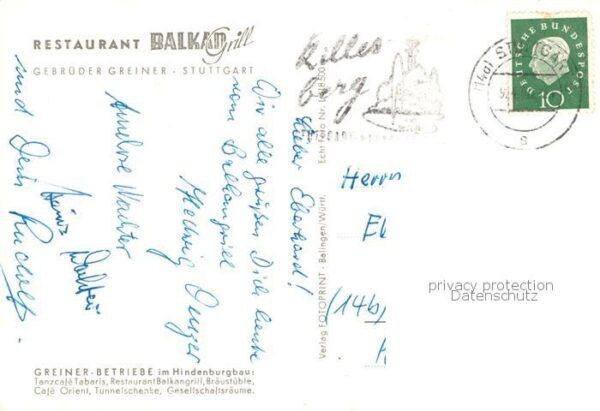 RESTAURANT BALKAN Grill
GEBRÜDER GREINER · STUTTGART
Lieber Eberhard!
Wir alle grüßen Dich heute
vom Balkangrill
Hedwig
Anelore Wachter
Heinz
und Dein Rudolf.
GREINER-BETRIEBE im Hindenburgbau:
Tanzcafé Tabaris, Restaurant Balkangrill, Bräustüble,
Café Orient, Tunnelschenke, Gesellschaftsräume.
Verlag FOTOPRINT · Balingen/Württ.
Echt Foto Nr.
Killes
berg
(14a)
DEUTSCHE BUNDESPOST
10
s
Herrn
(14b)
privacy protection
Datenschutz